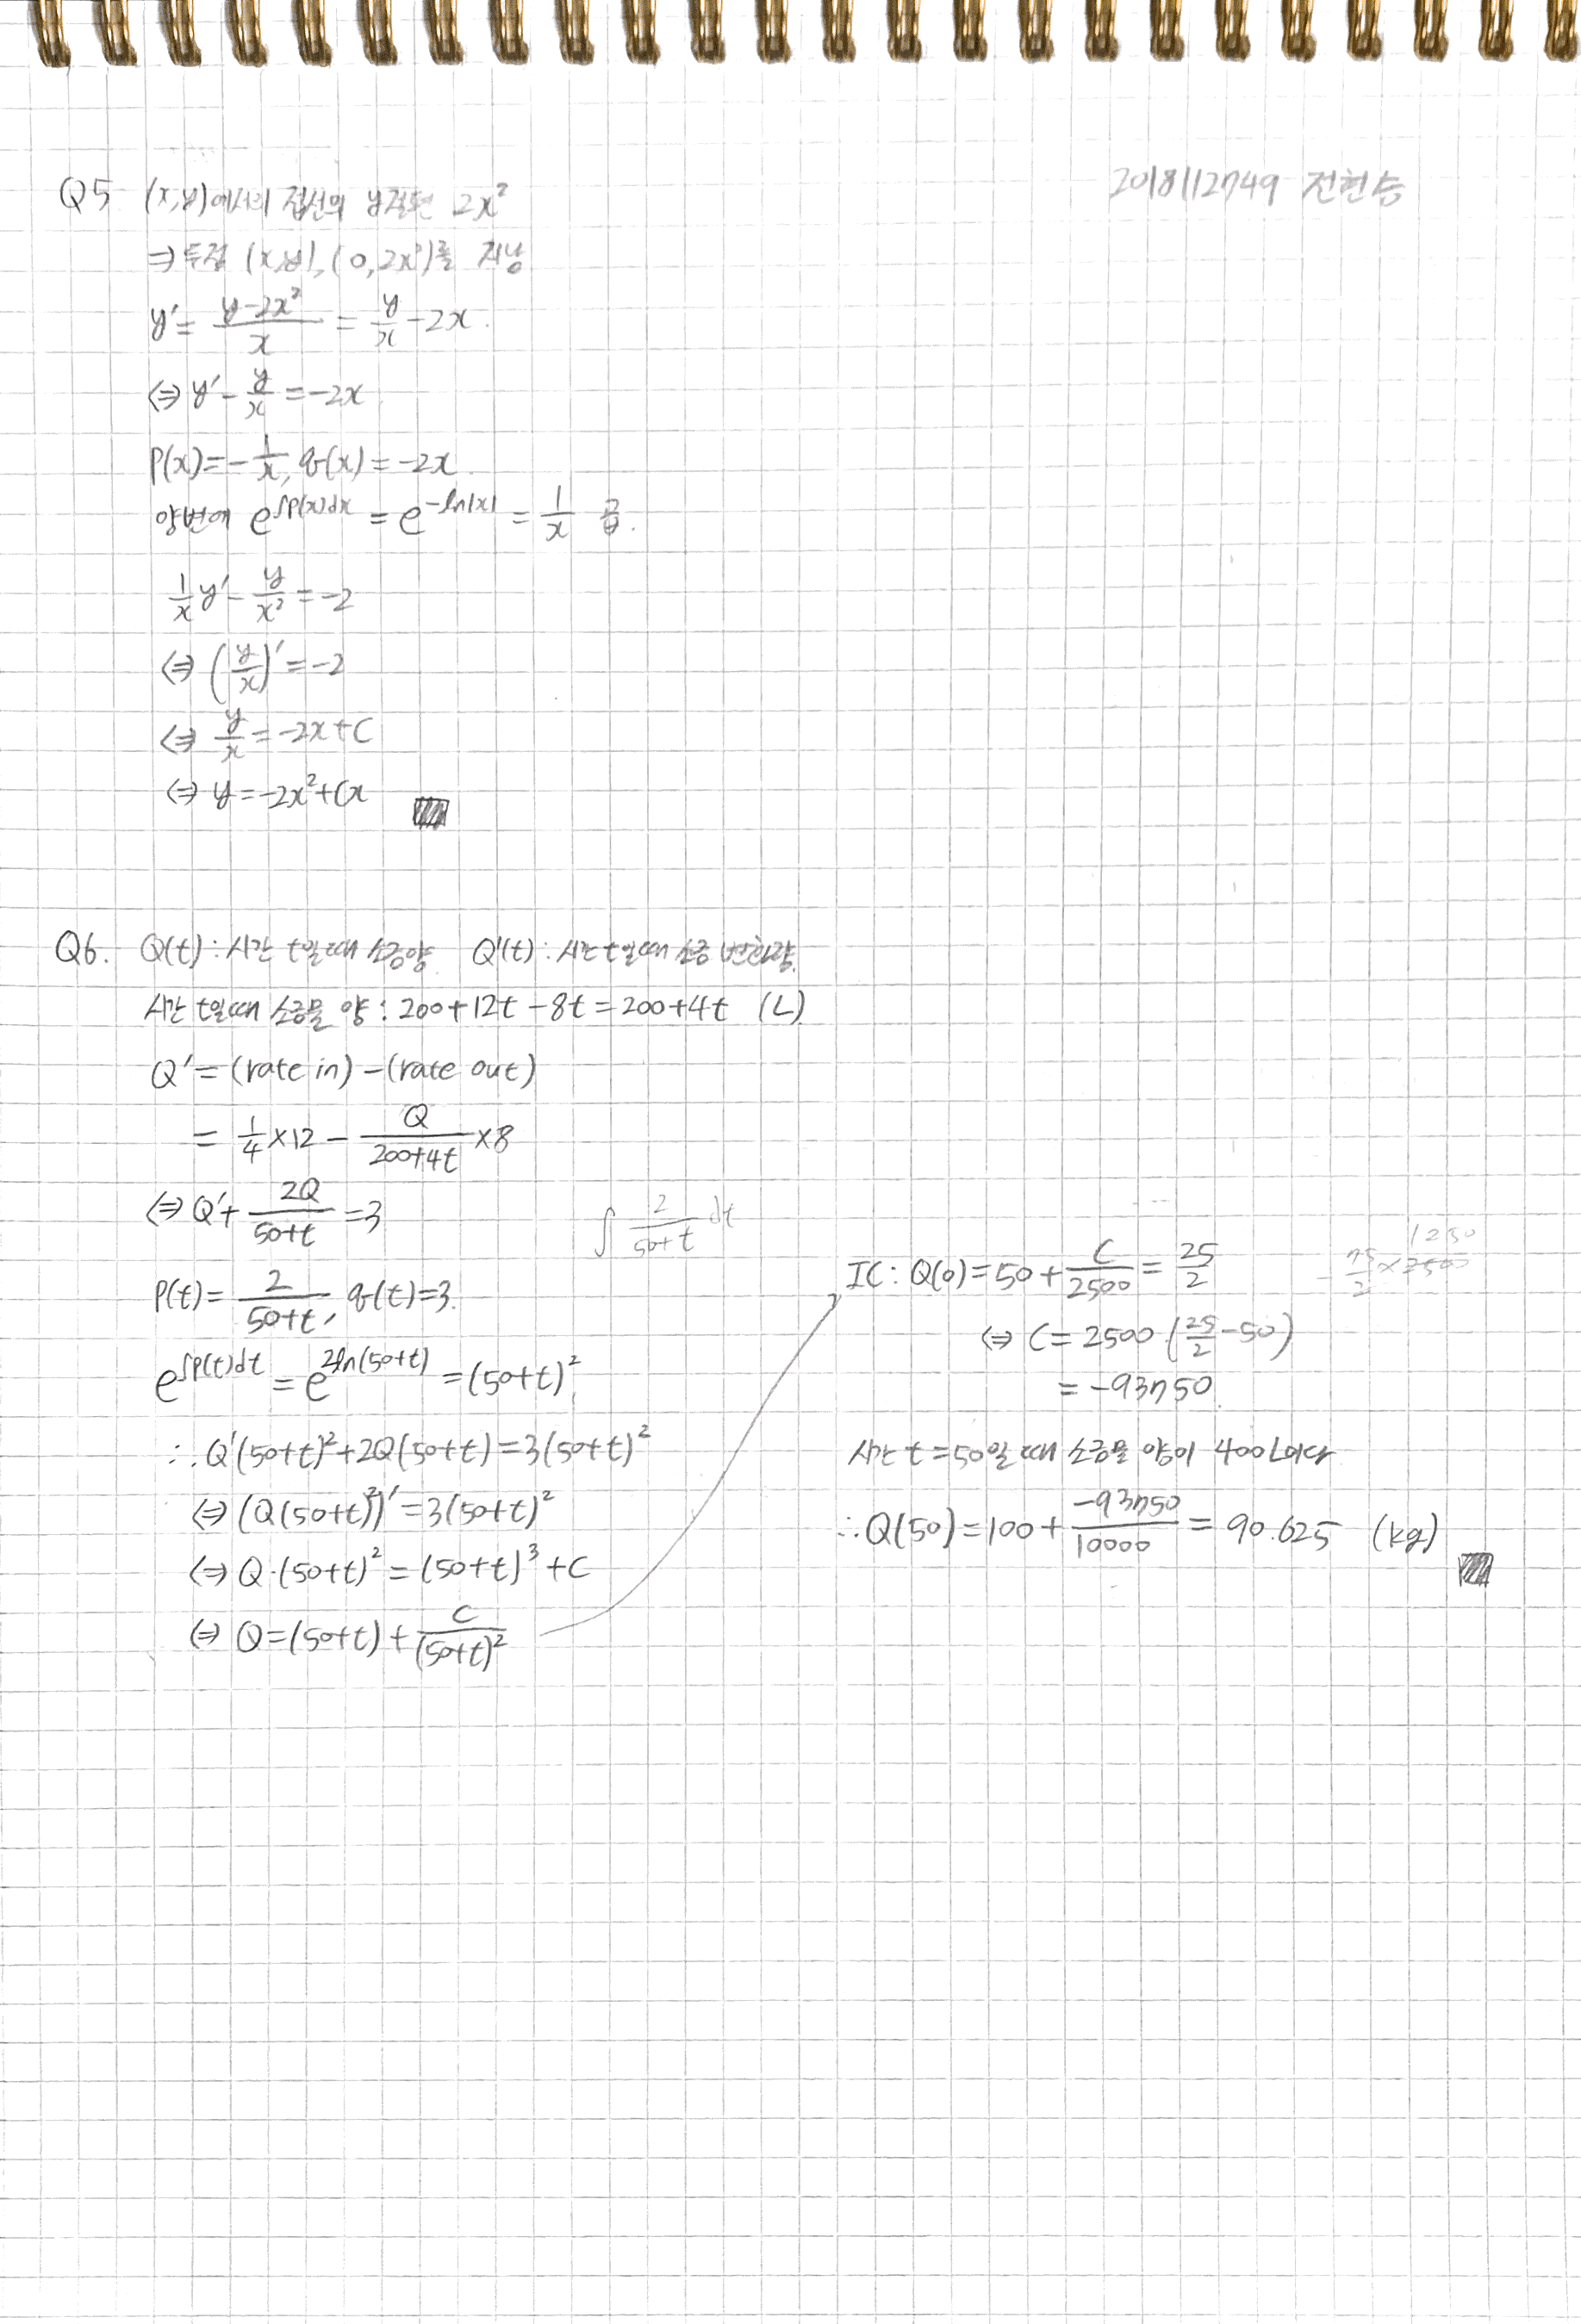 2018112749 전현승
Q5 (x,y)에서의 접선의 y절편 2x²
⇒ 두점 (x,y), (0,2x²)를 지남
y' = (y-2x²)/x = y/x - 2x.
⇔ y' - y/x = -2x
p(x) = -1/x, q(x) = -2x.
양변에 e^∫p(x)dx = e^-ln|x| = 1/x 곱.
1/x y' - y/x² = -2
⇔ (y/x)' = -2
⇔ y/x = -2x+C
⇔ y = -2x²+Cx
Q6. Q(t) : 시간 t일때 소금양. Q'(t) : 시간 t일때 소금 변화량.
시간 t일때 소금물 양 : 200+12t-8t = 200+4t (L)
Q' = (rate in) - (rate out)
= 1/4 × 12 - Q/(200+4t) × 8
⇔ Q' + 2Q/(50+t) = 3
∫ 2/(50+t) dt
p(t) = 2/(50+t), q(t) = 3.
e^∫p(t)dt = e^2ln(50+t) = (50+t)².
∴ Q'(50+t)² + 2Q(50+t) = 3(50+t)²
⇔ (Q(50+t)²)' = 3(50+t)²
⇔ Q·(50+t)² = (50+t)³ + C
⇔ Q = (50+t) + C/(50+t)²
IC : Q(0) = 50 + C/2500 = 25/2
- 75/2 × 2500 1250
⇔ C = 2500 (25/2 - 50)
= -93750.
시간 t=50일 때 소금물 양이 400L이다
∴ Q(50) = 100 + -93750/10000 = 90.625 (kg)